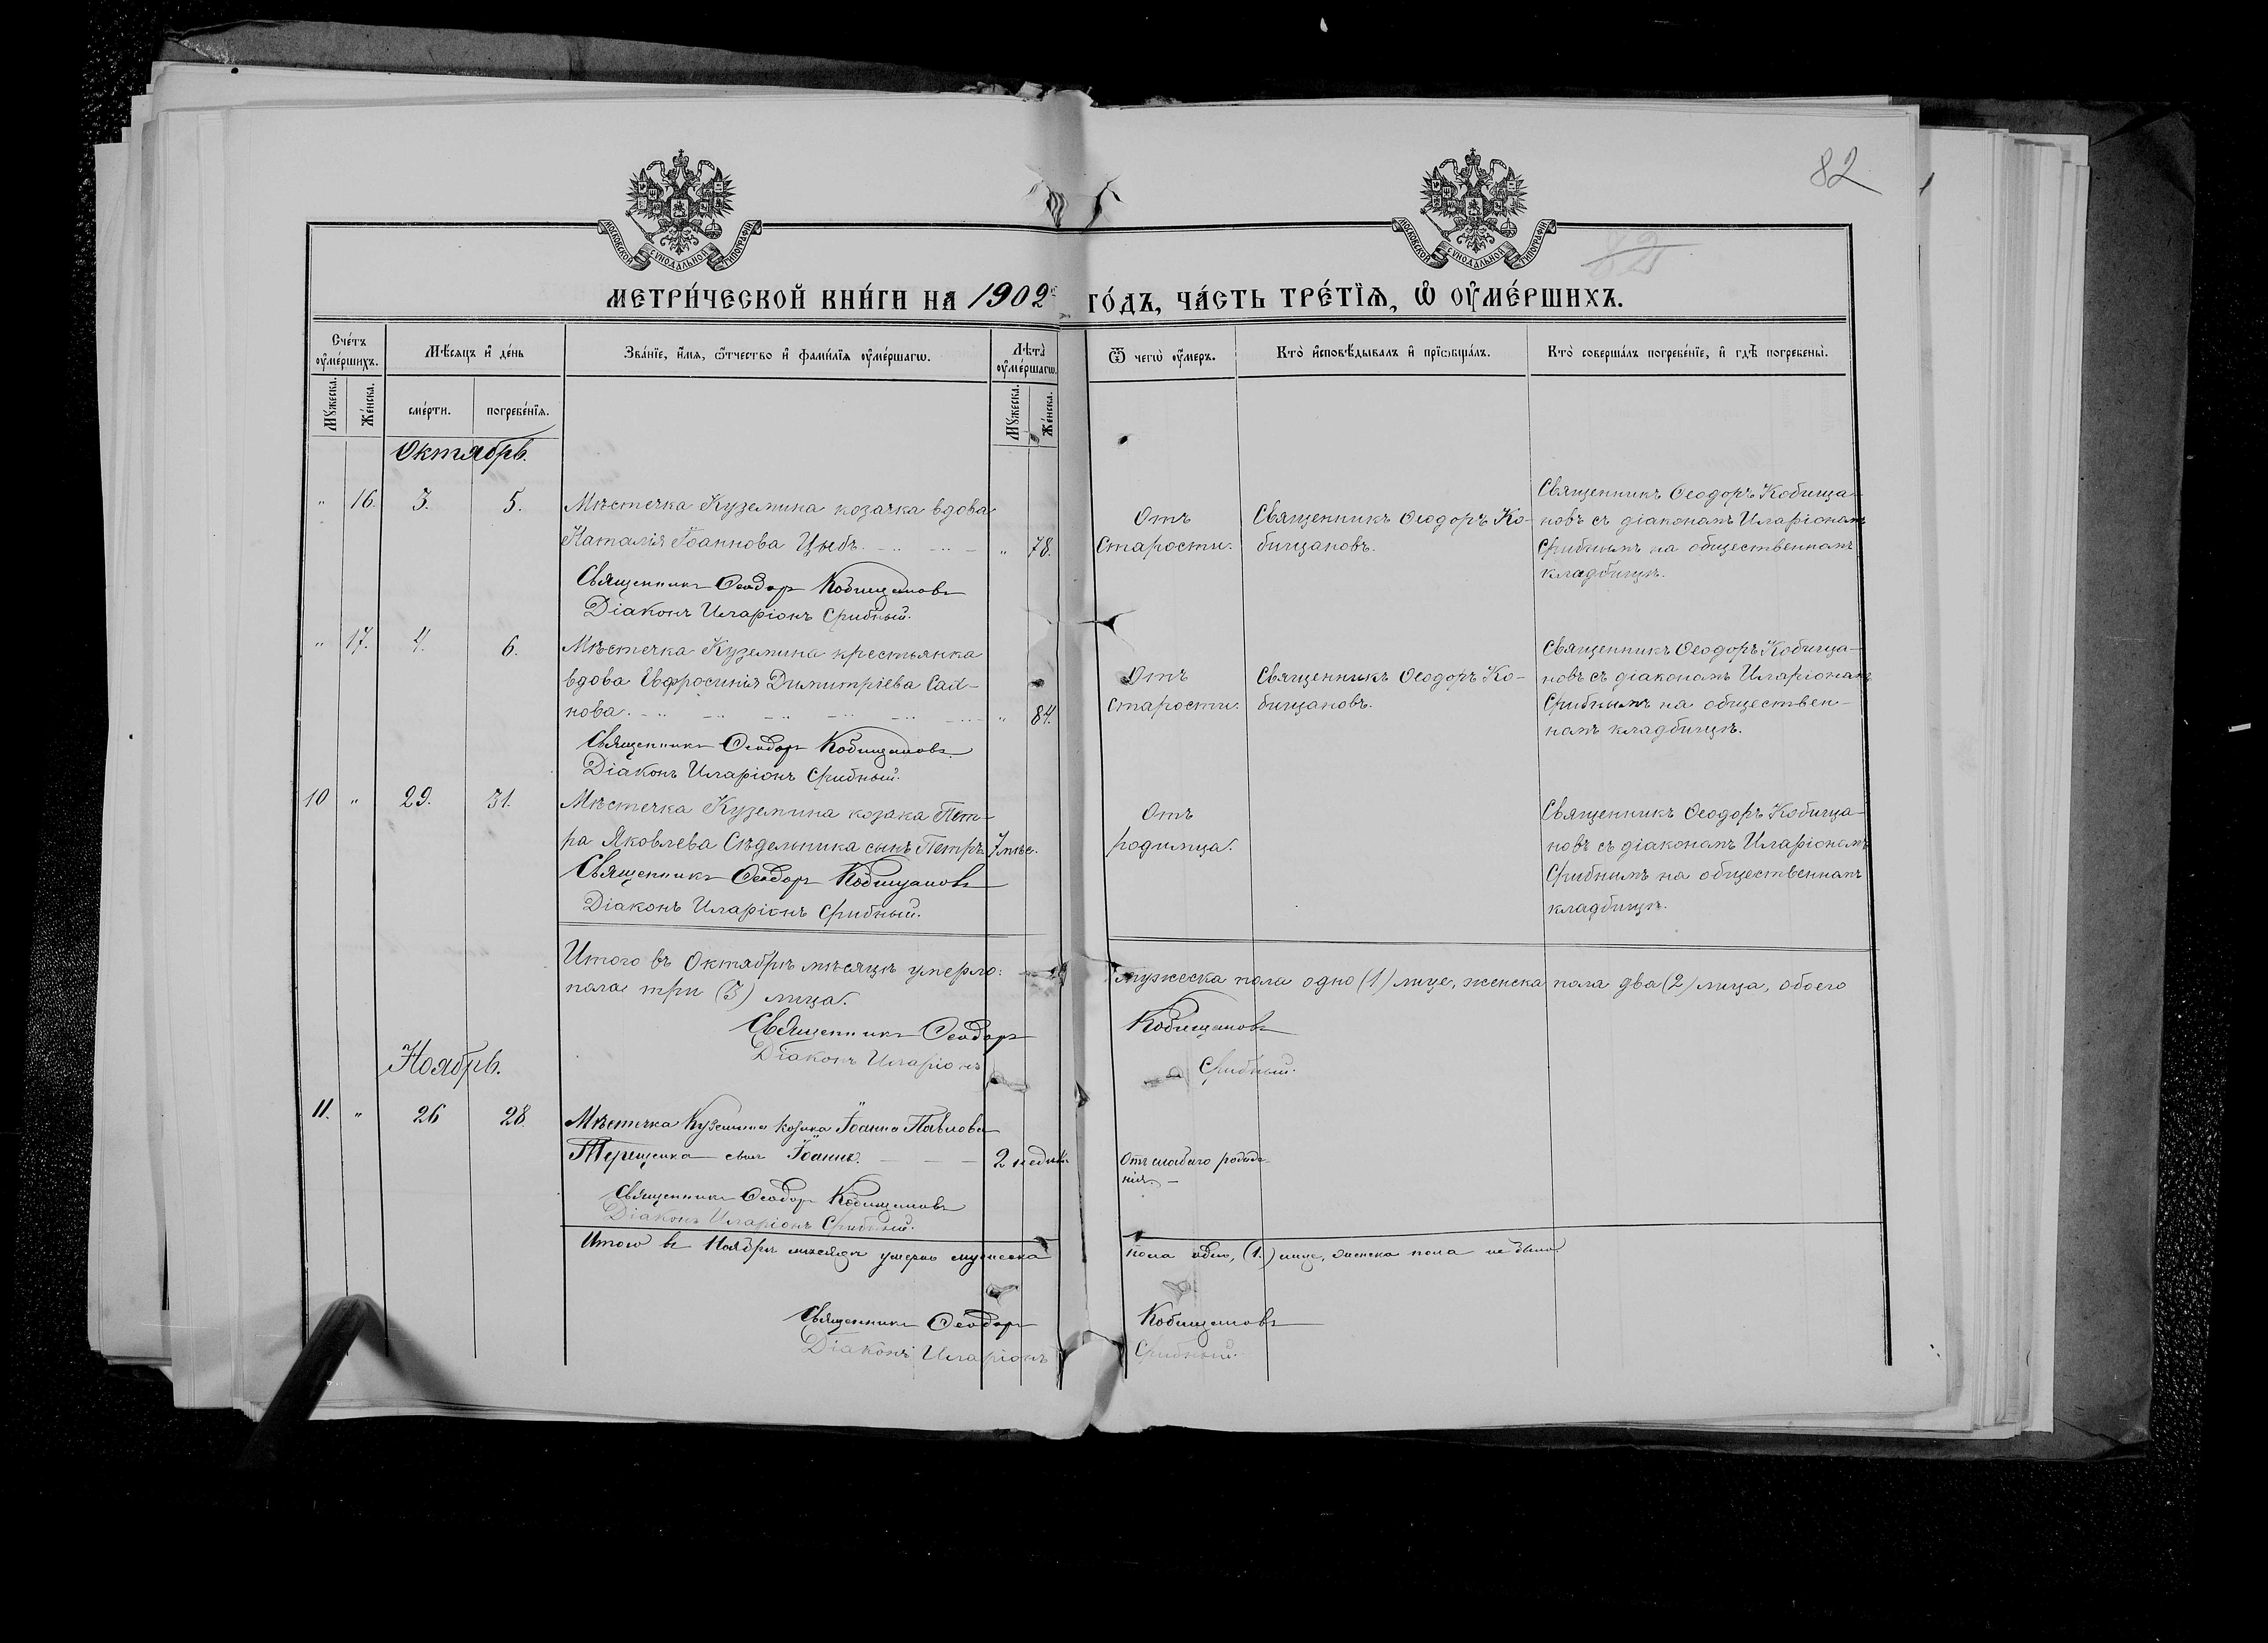 82
МОСКОВСКОЙ СУНОДАЛЬНОЙ ТИПОГРАФІИ
МОСКОВСКОЙ СУНОДАЛЬНОЙ ТИПОГРАФІИ
МЕТРИ́ЧЕСКОЙ КНИ́ГИ НА 1902 ГО́ДЪ, ЧА́СТЬ ТРЕ́ТІѦ, Ѡ ОУ҆МЕ́РШИХЪ.
Сче́тъ оу҆ме́ршихъ.
Мѣ́сѧцъ и҆ де́нь
Зва́нїе, и҆́мѧ, ѻ҆́тчество и҆ фами́лїѧ оу҆ме́ршагѡ.
Лѣ́та оу҆ме́ршагѡ.
Ѿ чегѡ̀ оу҆́меръ.
Кто̀ и҆сповѣ́дывалъ и҆ прїѡбща́лъ.
Кто̀ соверша́лъ погребе́нїе, и҆ гдѣ̀ погребены̀.
Мꙋ́жеска.
Же́нска.
сме́рти.
погребе́нїѧ.
Мꙋ́жеска.
Же́нска.
Октябрь.
" 16. 3. 5.
Мѣстечка Куземина козачка вдова
Наталія Іоаннова Цыбъ. " 78.
Священникъ Ѳеодоръ Кобищановъ
Діаконъ Иларіонъ Срибный.
Отъ
старости.
Священникъ Ѳеодоръ Ко-
бищановъ.
Священникъ Ѳеодоръ Кобища-
новъ съ діакономъ Иларіономъ
Срибнымъ на общественномъ
кладбищѣ.
" 17. 4. 6.
Мѣстечка Куземина крестьянка
вдова Евфросинія Димитріева
нова. " 84.
Священникъ Ѳеодоръ Кобищановъ
Діаконъ Иларіонъ Срибный.
Отъ
старости.
Священникъ Ѳеодоръ Ко-
бищановъ.
Священникъ Ѳеодоръ Кобища-
новъ съ діакономъ Иларіономъ
Срибнымъ на обществен-
номъ кладбищѣ.
10 " 29. 31.
Мѣстечка Куземина козака Пет-
ра Яковлева Сѣдельника сынъ Петръ. 7 мѣс.
Священникъ Ѳеодоръ Кобищановъ
Діаконъ Иларіонъ Срибный.
Отъ
родимца.
Священникъ Ѳеодоръ Кобища-
новъ съ діакономъ Иларіономъ
Срибнымъ на общественномъ
кладбищѣ.
Итого въ Октябрѣ мѣсяцѣ умерло: мужеска пола одно (1) лице, женска пола два (2) лица, обоего
пола три (3) лица.
Священникъ Ѳеодоръ Кобищановъ
Діаконъ Иларіонъ Срибный.
Ноябрь.
11. " 26 28.
Мѣстечка Куземина козака Іоанна Павлова
Терещенка сынъ Іоаннъ. 2 недѣли
Священникъ Ѳеодоръ Кобищановъ
Діаконъ Иларіонъ Срибный.
Отъ слабаго рожде-
нія.
Итого въ Ноябрѣ мѣсяцѣ умерло мужеска пола одно, (1.) лице, женска пола не было.
Священникъ Ѳеодоръ Кобищановъ
Діаконъ Иларіонъ Срибный.